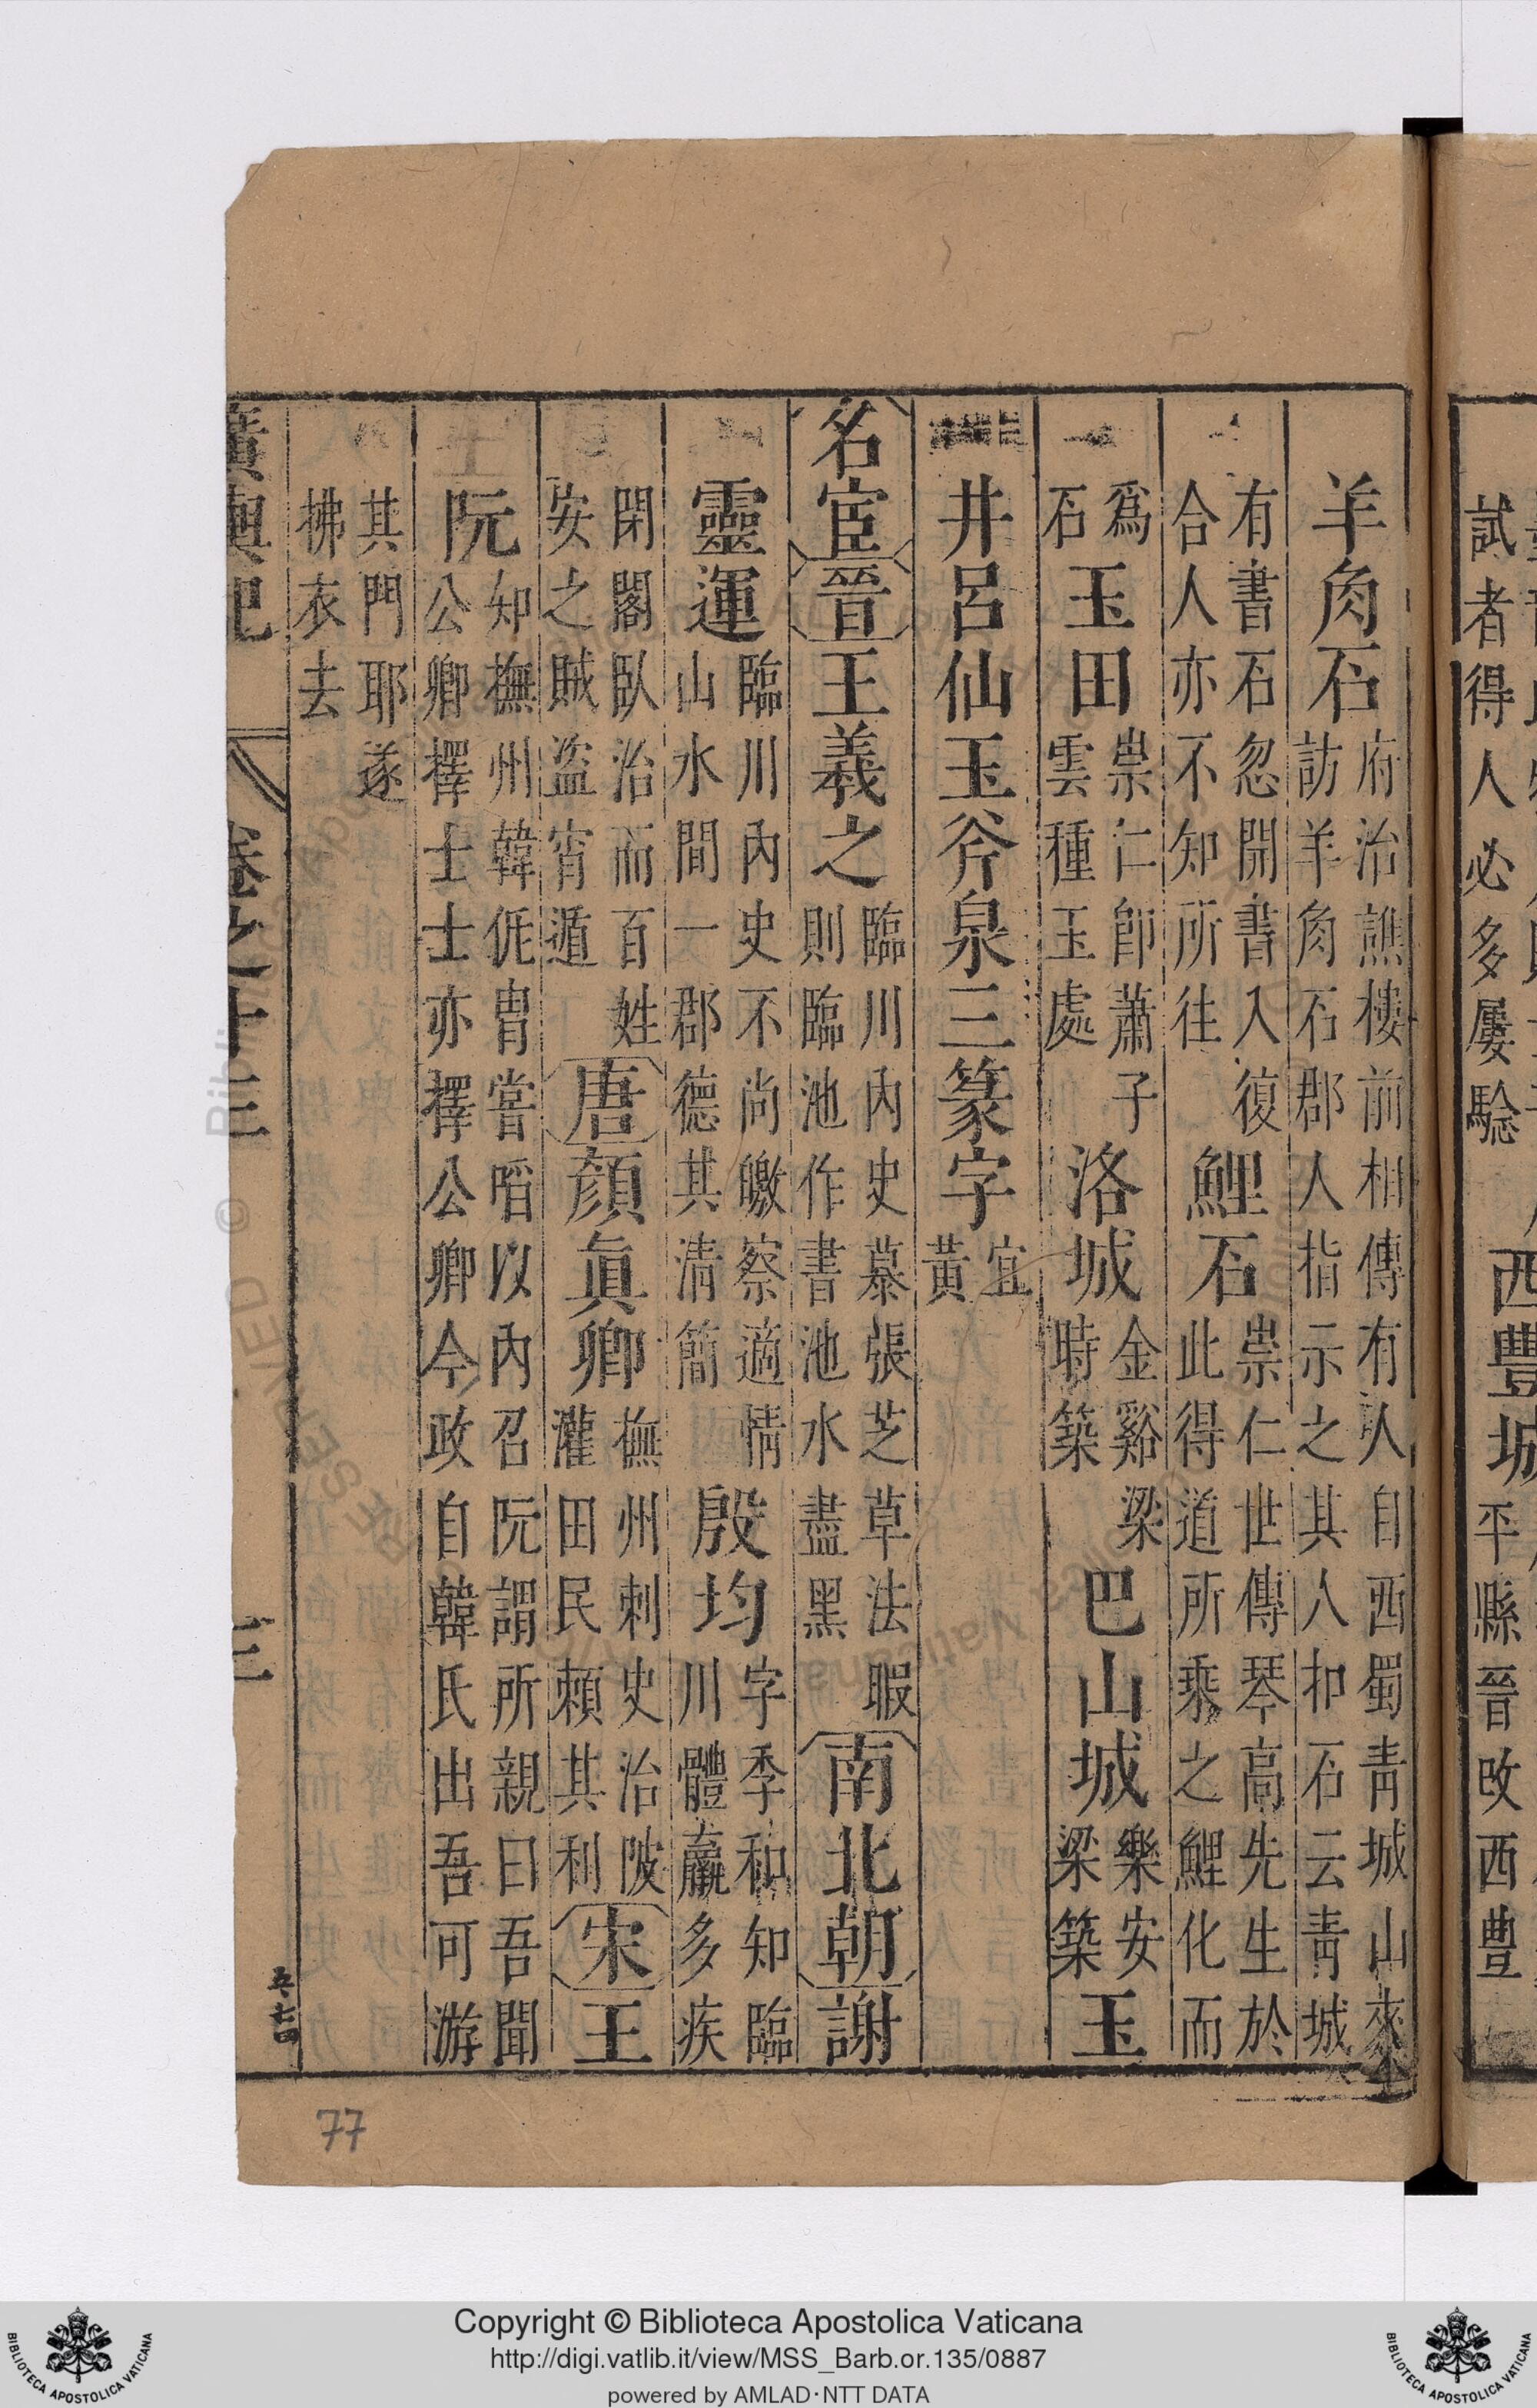 試者得人必多屢驗 西豐城 平縣晉改西豊
羊角石 府治譙樓前相傳有人自西蜀青城山來
訪羊角石郡人指示之其人扣石云青城
有書石忽開書入復
合人亦不知所往 鯉石 崇仁世傳琴高先生於
此得道所乘之鯉化而
爲
石 玉田 崇仁卽蕭子
雲種玉處 洛城 金谿梁
時築 巴山城 樂安
梁築 玉
井呂仙玉斧泉三篆字 宜
黃
名宦 晉 王義之 臨川內史慕張芝草法暇
則臨池作書池水盡黑 南北朝 謝
靈運 臨川內史不尚皦察適情
山水間一郡德其清簡 殷均 字季和知臨
川體羸多疾
閉閣臥治而百姓
安之賊盜宵遁 唐 顏眞卿 撫州刺史治陂
灌田民賴其利 宋 王
阮 知撫州韓侂胄嘗啗以內召阮謂所親曰吾聞
公卿擇士士亦擇公卿今政自韓氏出吾可游
其門耶遂
拂衣去
廣輿記 卷之十三 三
77
Copyright © Biblioteca Apostolica Vaticana
http://digi.vatlib.it/view/MSS_Barb.or.135/0887
powered by AMLAD·NTT DATA
BIBLIOTECA APOSTOLICA VATICANA
BIBLIOTECA APOSTOLICA VATICANA